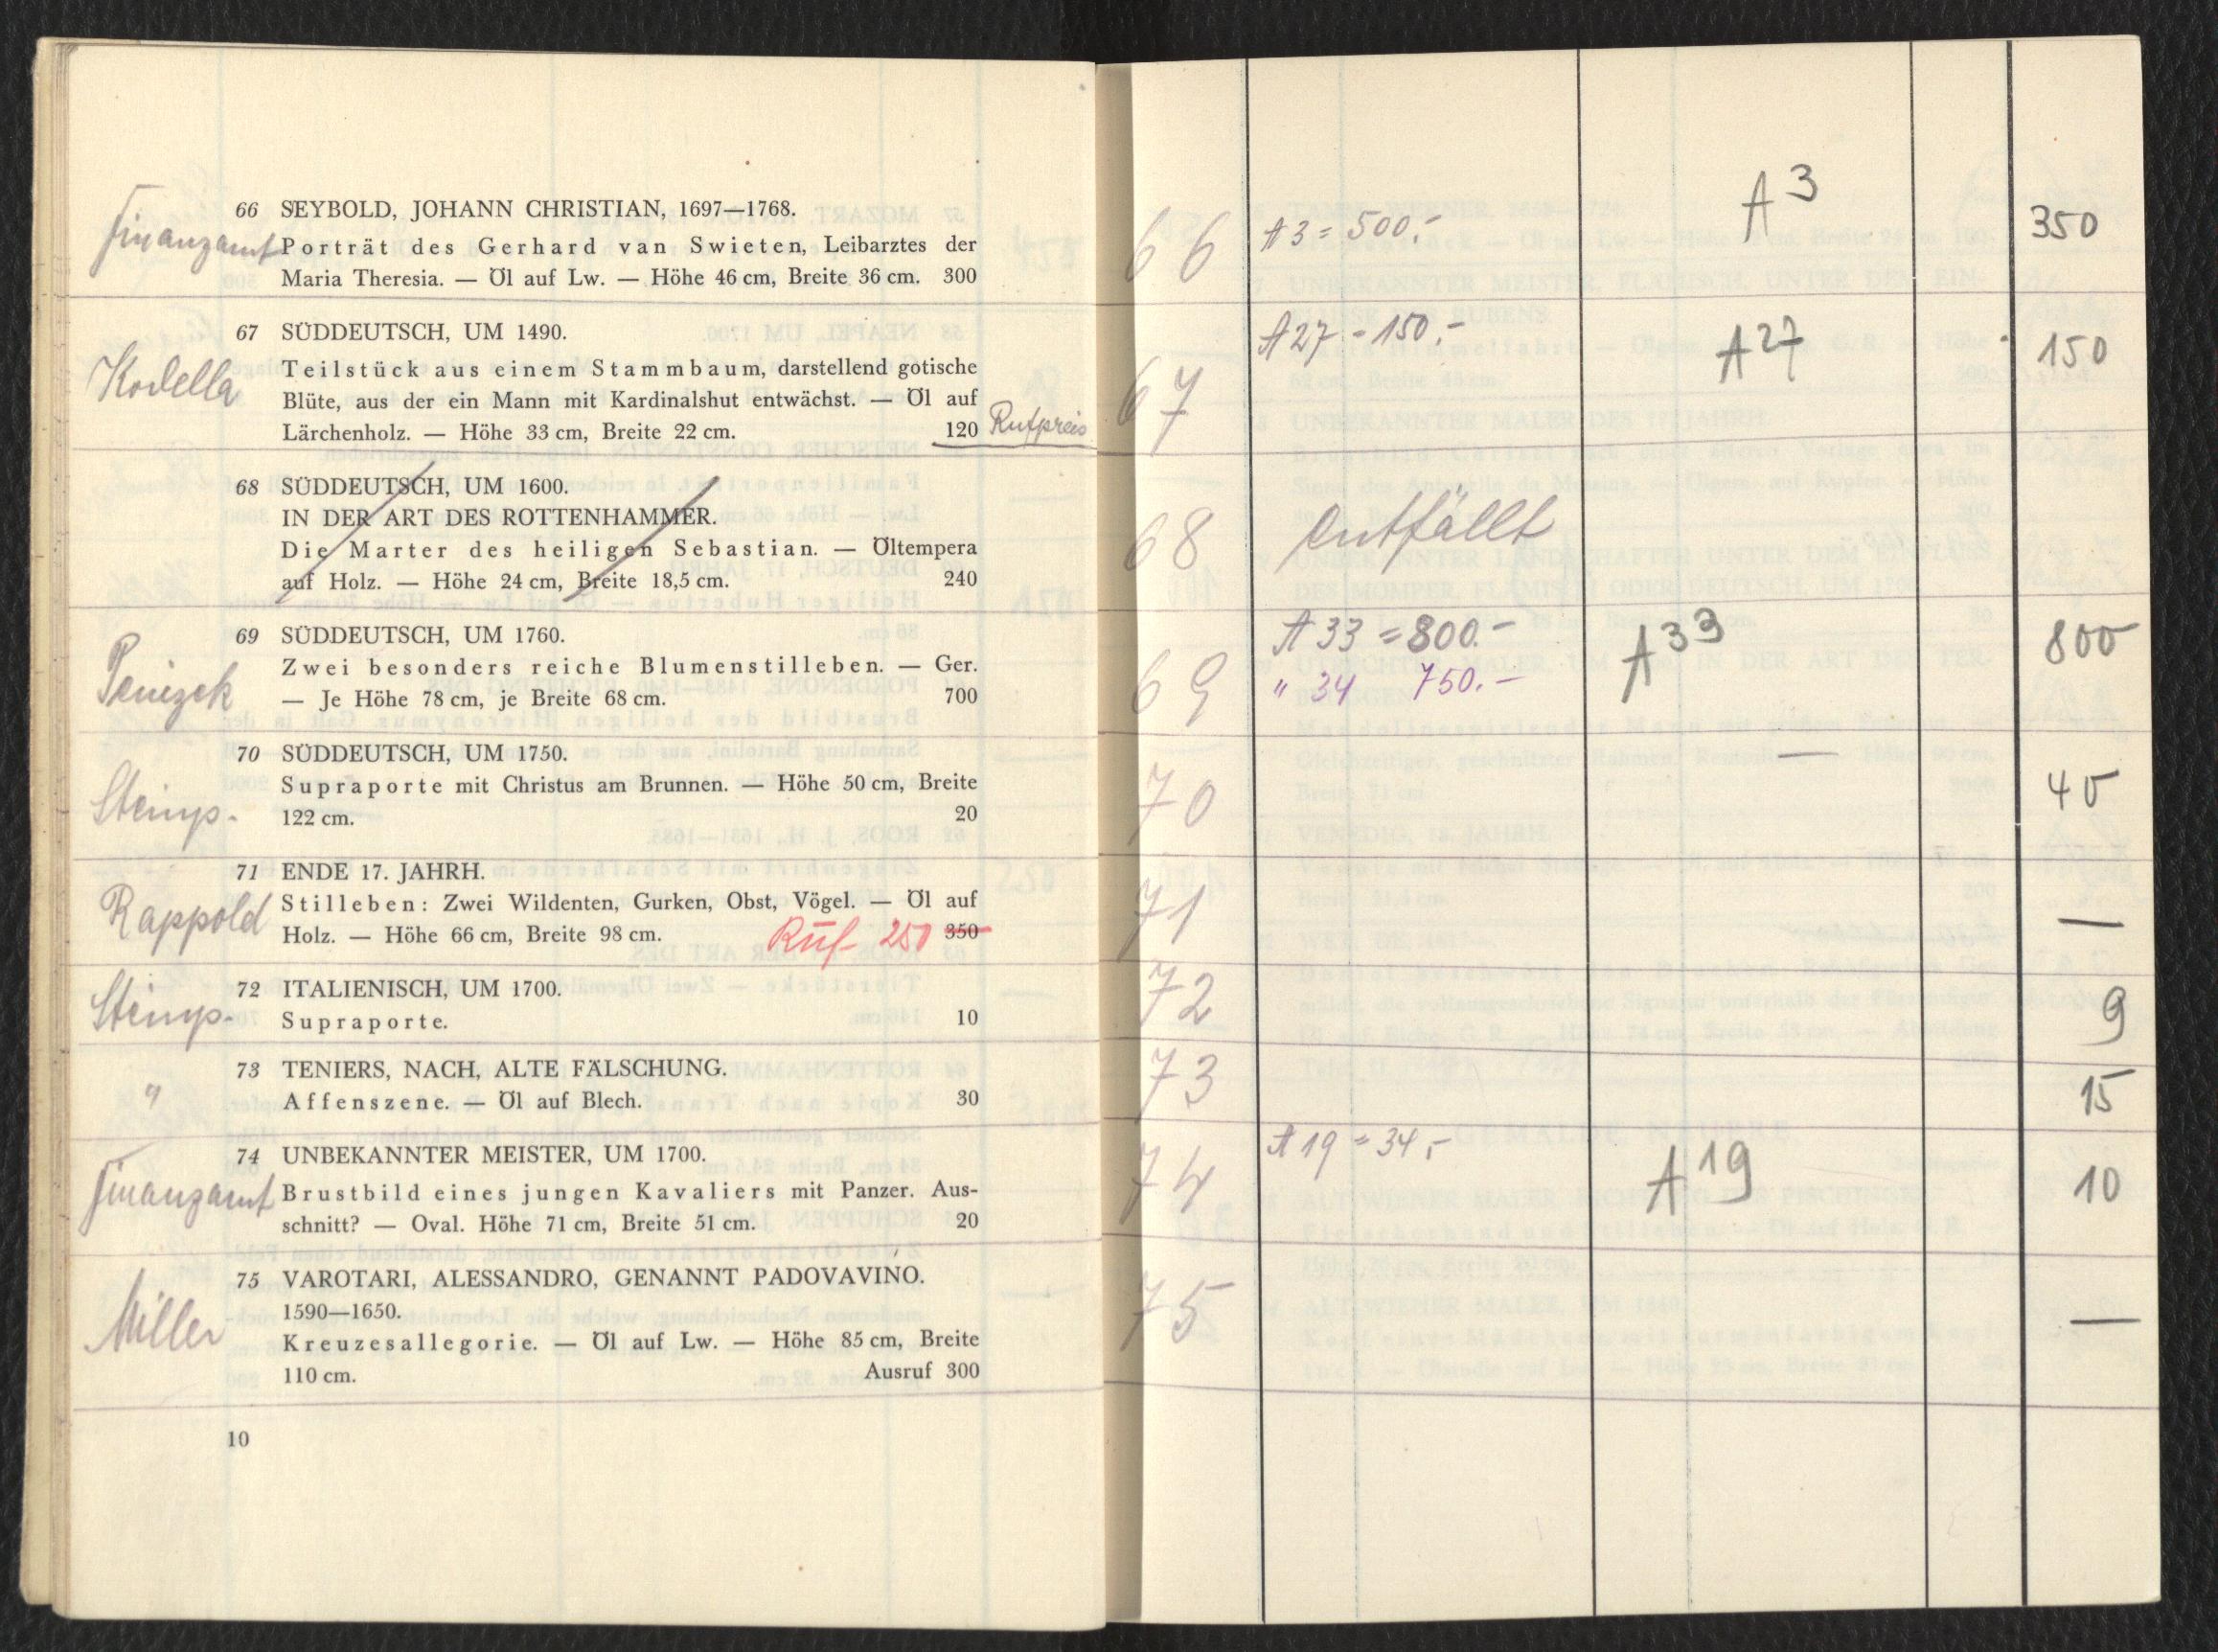 Finanzamt
66 SEYBOLD, JOHANN CHRISTIAN, 1697—1768.
Porträt des Gerhard van Swieten, Leibarztes der
Maria Theresia. — Öl auf Lw. — Höhe 46 cm, Breite 36 cm. 300
Kodella
67 SÜDDEUTSCH, UM 1490.
Teilstück aus einem Stammbaum, darstellend gotische
Blüte, aus der ein Mann mit Kardinalshut entwächst. — Öl auf
Lärchenholz. — Höhe 33 cm, Breite 22 cm. 120 Rufpreis
68 SÜDDEUTSCH, UM 1600.
IN DER ART DES ROTTENHAMMER.
Die Marter des heiligen Sebastian. — Öltempera
auf Holz. — Höhe 24 cm, Breite 18,5 cm. 240
69 SÜDDEUTSCH, UM 1760.
Zwei besonders reiche Blumenstilleben. — Ger.
— Je Höhe 78 cm, je Breite 68 cm. 700
70 SÜDDEUTSCH, UM 1750.
Supraporte mit Christus am Brunnen. — Höhe 50 cm, Breite
122 cm. 20
Rappold
71 ENDE 17. JAHRH.
Stilleben: Zwei Wildenten, Gurken, Obst, Vögel. — Öl auf
Holz. — Höhe 66 cm, Breite 98 cm. Ruf 250 350
72 ITALIENISCH, UM 1700.
Supraporte. 10
"
73 TENIERS, NACH, ALTE FÄLSCHUNG.
Affenszene. — Öl auf Blech. 30
Finanzamt
74 UNBEKANNTER MEISTER, UM 1700.
Brustbild eines jungen Kavaliers mit Panzer. Aus-
schnitt? — Oval. Höhe 71 cm, Breite 51 cm. 20
Miller
75 VAROTARI, ALESSANDRO, GENANNT PADOVAVINO.
1590—1650.
Kreuzesallegorie. — Öl auf Lw. — Höhe 85 cm, Breite
110 cm. Ausruf 300
10
66 A3 = 500.- A 3 350
67 A27 - 150.- A 27 150
68 entfällt
69 A 33 = 800.- A 33 800
" 34 750.-
70 — 40
71 —
72 9
73 15
74 A 19 = 34,- A 19 10
75 —